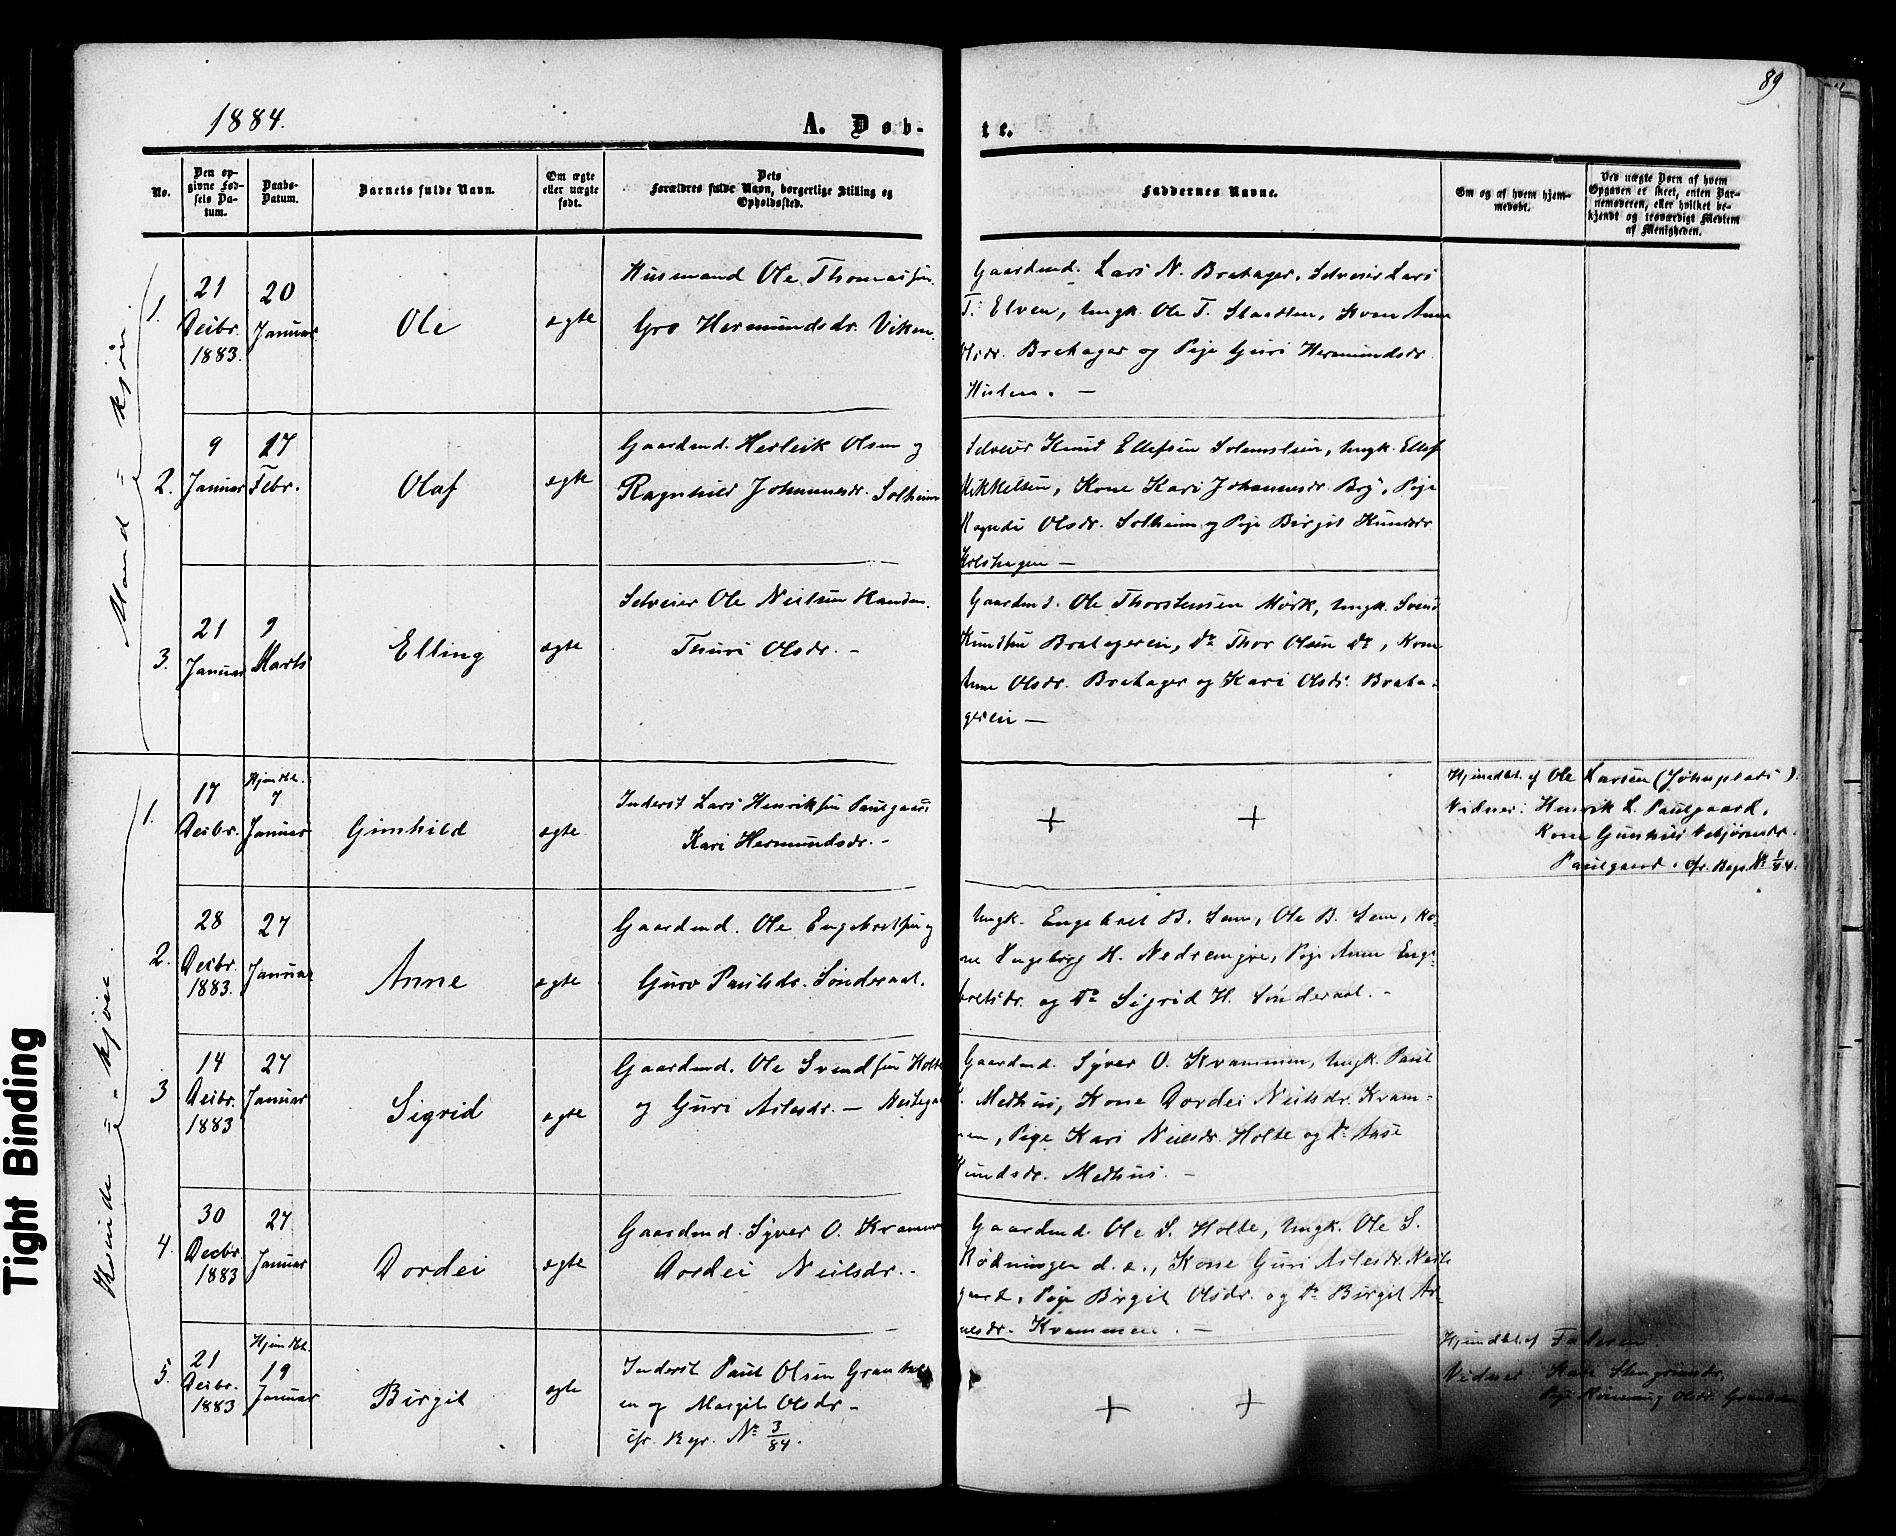 89
1884.
A. Døb-
te.
No.
Den op-
givne Fød-
sels Da-
tum.
Daabs-
Datum.
Barnets fulde Navn.
Om ægte
eller uægte
født.
Dets
Forældres fulde Navn, borgerlige Stilling og
Opholdssted.
Faddernes Navne.
Om og af hvem hjem-
medøbt.
Ved uægte Børn af hvem
Opgaven er skeet, enten Bar-
nemoderen, eller hvilket be-
kjendt og troværdigt Medlem
af Menigheden.
Mand-kjøn.
1.
21
Decbr.
1883.
20
Januar
Ole
ægte
Husmand Ole Thomassen.
Gro Hermundsdr. Viken.
Gaardmd. Lars N. Brahager, Selveier Lars
T. Elven, Ungk. Ole T. Slaatten, Kone Anne
Olsdr. Brahager og Pige Guri Hermundsdr.
2.
9
Januar
17
Febr.
Olaf
ægte
Gaardmd. Herleik Olsen og
Ragnhild Johannesdr. Solheim
Selveier Knud Ellefsen, Ungk. Ellef
Mikkelsen, Kone Kari Johannesdr. Pige
Olsdr. Solheim og Pige Birgit Knudsdr.
3.
21
Januar
9
Marts
Elling
ægte
Selveier Ole Neilsen
Thuri Olsdr. -
Gaardmd. Ole Thorstensen Mørk, Ungk. Svend
Knudsen Brahageren, do Thor Olsen do, Kone
Anne Olsdr. Brahager og Kari Olsdr. Braha-
geren -
Kvinde-kjøn.
1.
17
Decbr.
Hjemdbt.
7
Januar
Gunhild
ægte
Inderst Lars Henriksen Paulgaard
Kari Hermundsdr. -
+ +
Hjemdbt. af Ole Larsen
Vidner: Henrik L. Paulgaard,
Kone Gunhild
Paulgaard. cfr. No 1/84.
2.
28
Decbr.
1883.
27
Januar
Anne
ægte
Gaardmd. Ole Engebretsen og
Guro Paulsdr. Sønderaal.
Ungk. Engebret B. Sem, Ole B. Sem, Ko-
ne Ingeborg H. Pige Anne Enge-
bretsdr. og do Sigrid H. Sønderaal. -
3
14
Decbr.
1883
27
Januar
Sigrid
ægte
Gaardmd. Ole Svendsen Holte
og Guri Aslesdr. -
Gaardmd. Syver O. Kvammen, Ungk. Paul
Methus, Kone Dordei Neilsdr. Kvam-
men, Pige Kari Neilsdr. Holte og do Aase
Knudsdr. Methus. -
4.
30
Decbr.
1883
27
Januar
Dordei
ægte
Gaardmd. Syver O. Kvammen
Dordei Neilsdr. -
Gaardmd. Ole S. Holte, Ungk. Ole S.
Rødningen d. e., Kone Guri Aslesdr.
Pige Birgit Olsdr. og do Birgit Ar-
nesdr. Kvammen. -
5.
21
Decbr.
1883
Hjemdbt.
19
Januar
Birgit
ægte
Inderst Paul Olsen
og Margit Olsdr -
cfr. No 3/84.
+ +
Hjemdbt. af Faderen.
Vidner: Kari
Pige Olsdr.
Tight Binding